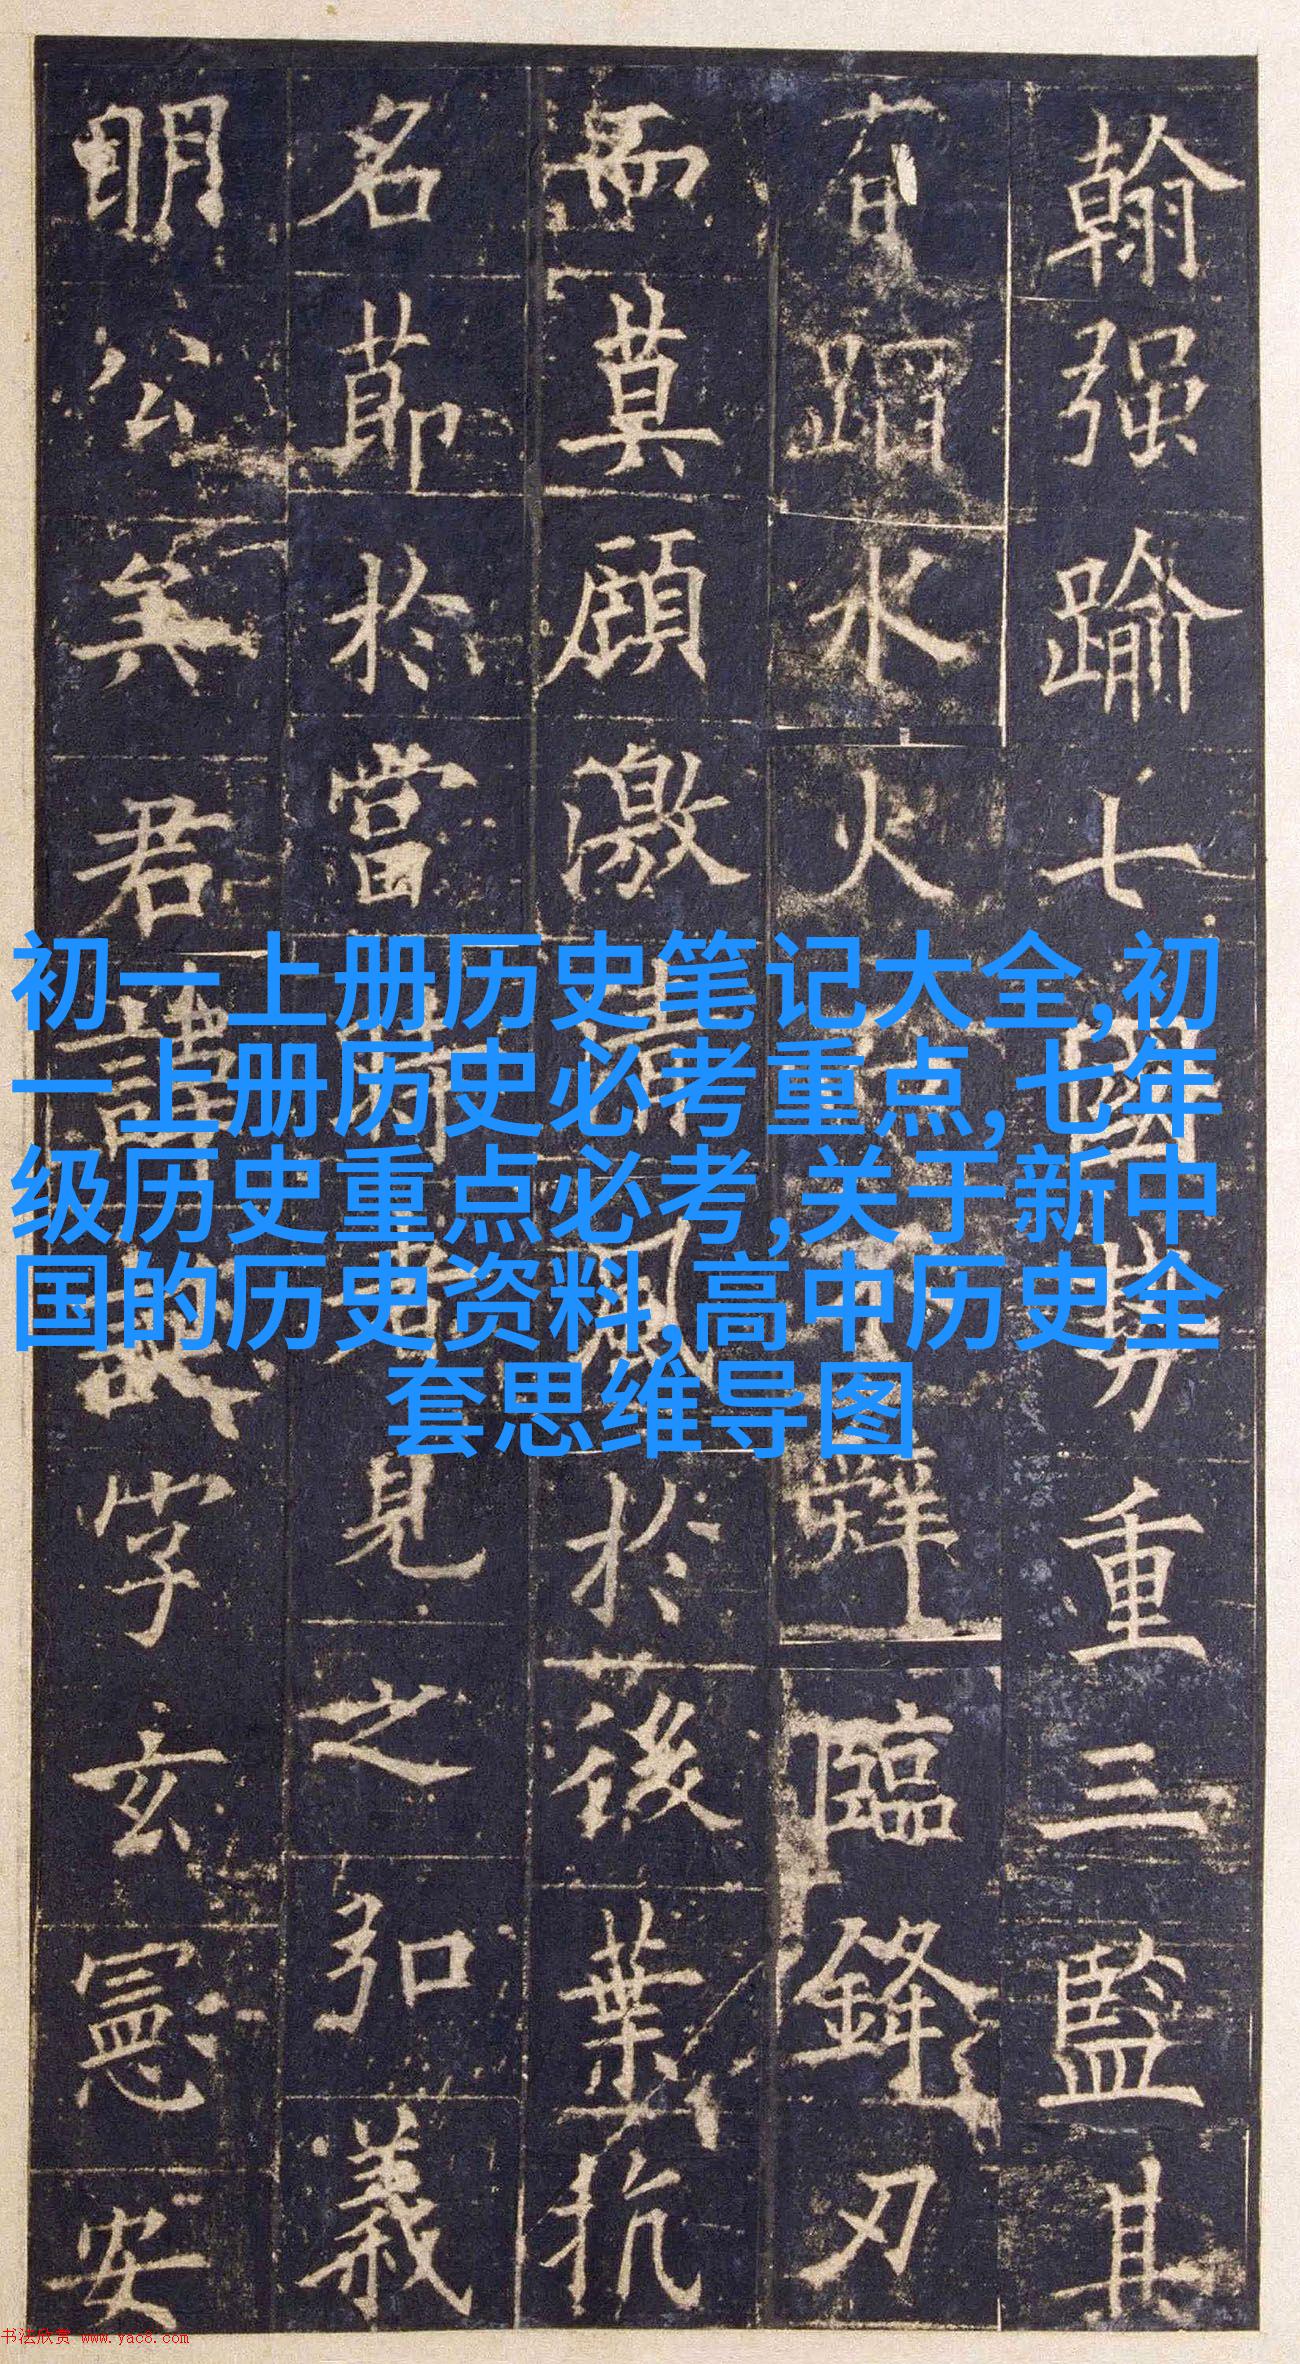 翰强踰七國勢重三監其
有蹈水火而不辭臨鋒刃
而莫顧激清風於後葉抗
名節於當時者見之弘義
明公矣君諱誕字玄憲安
初一上册历史笔记大全,初
一上册历史必考重点,七年
级历史重点必考,关于新中
国的历史资料,高中历史全
套思维导图
书法欣赏 www.yac8.com